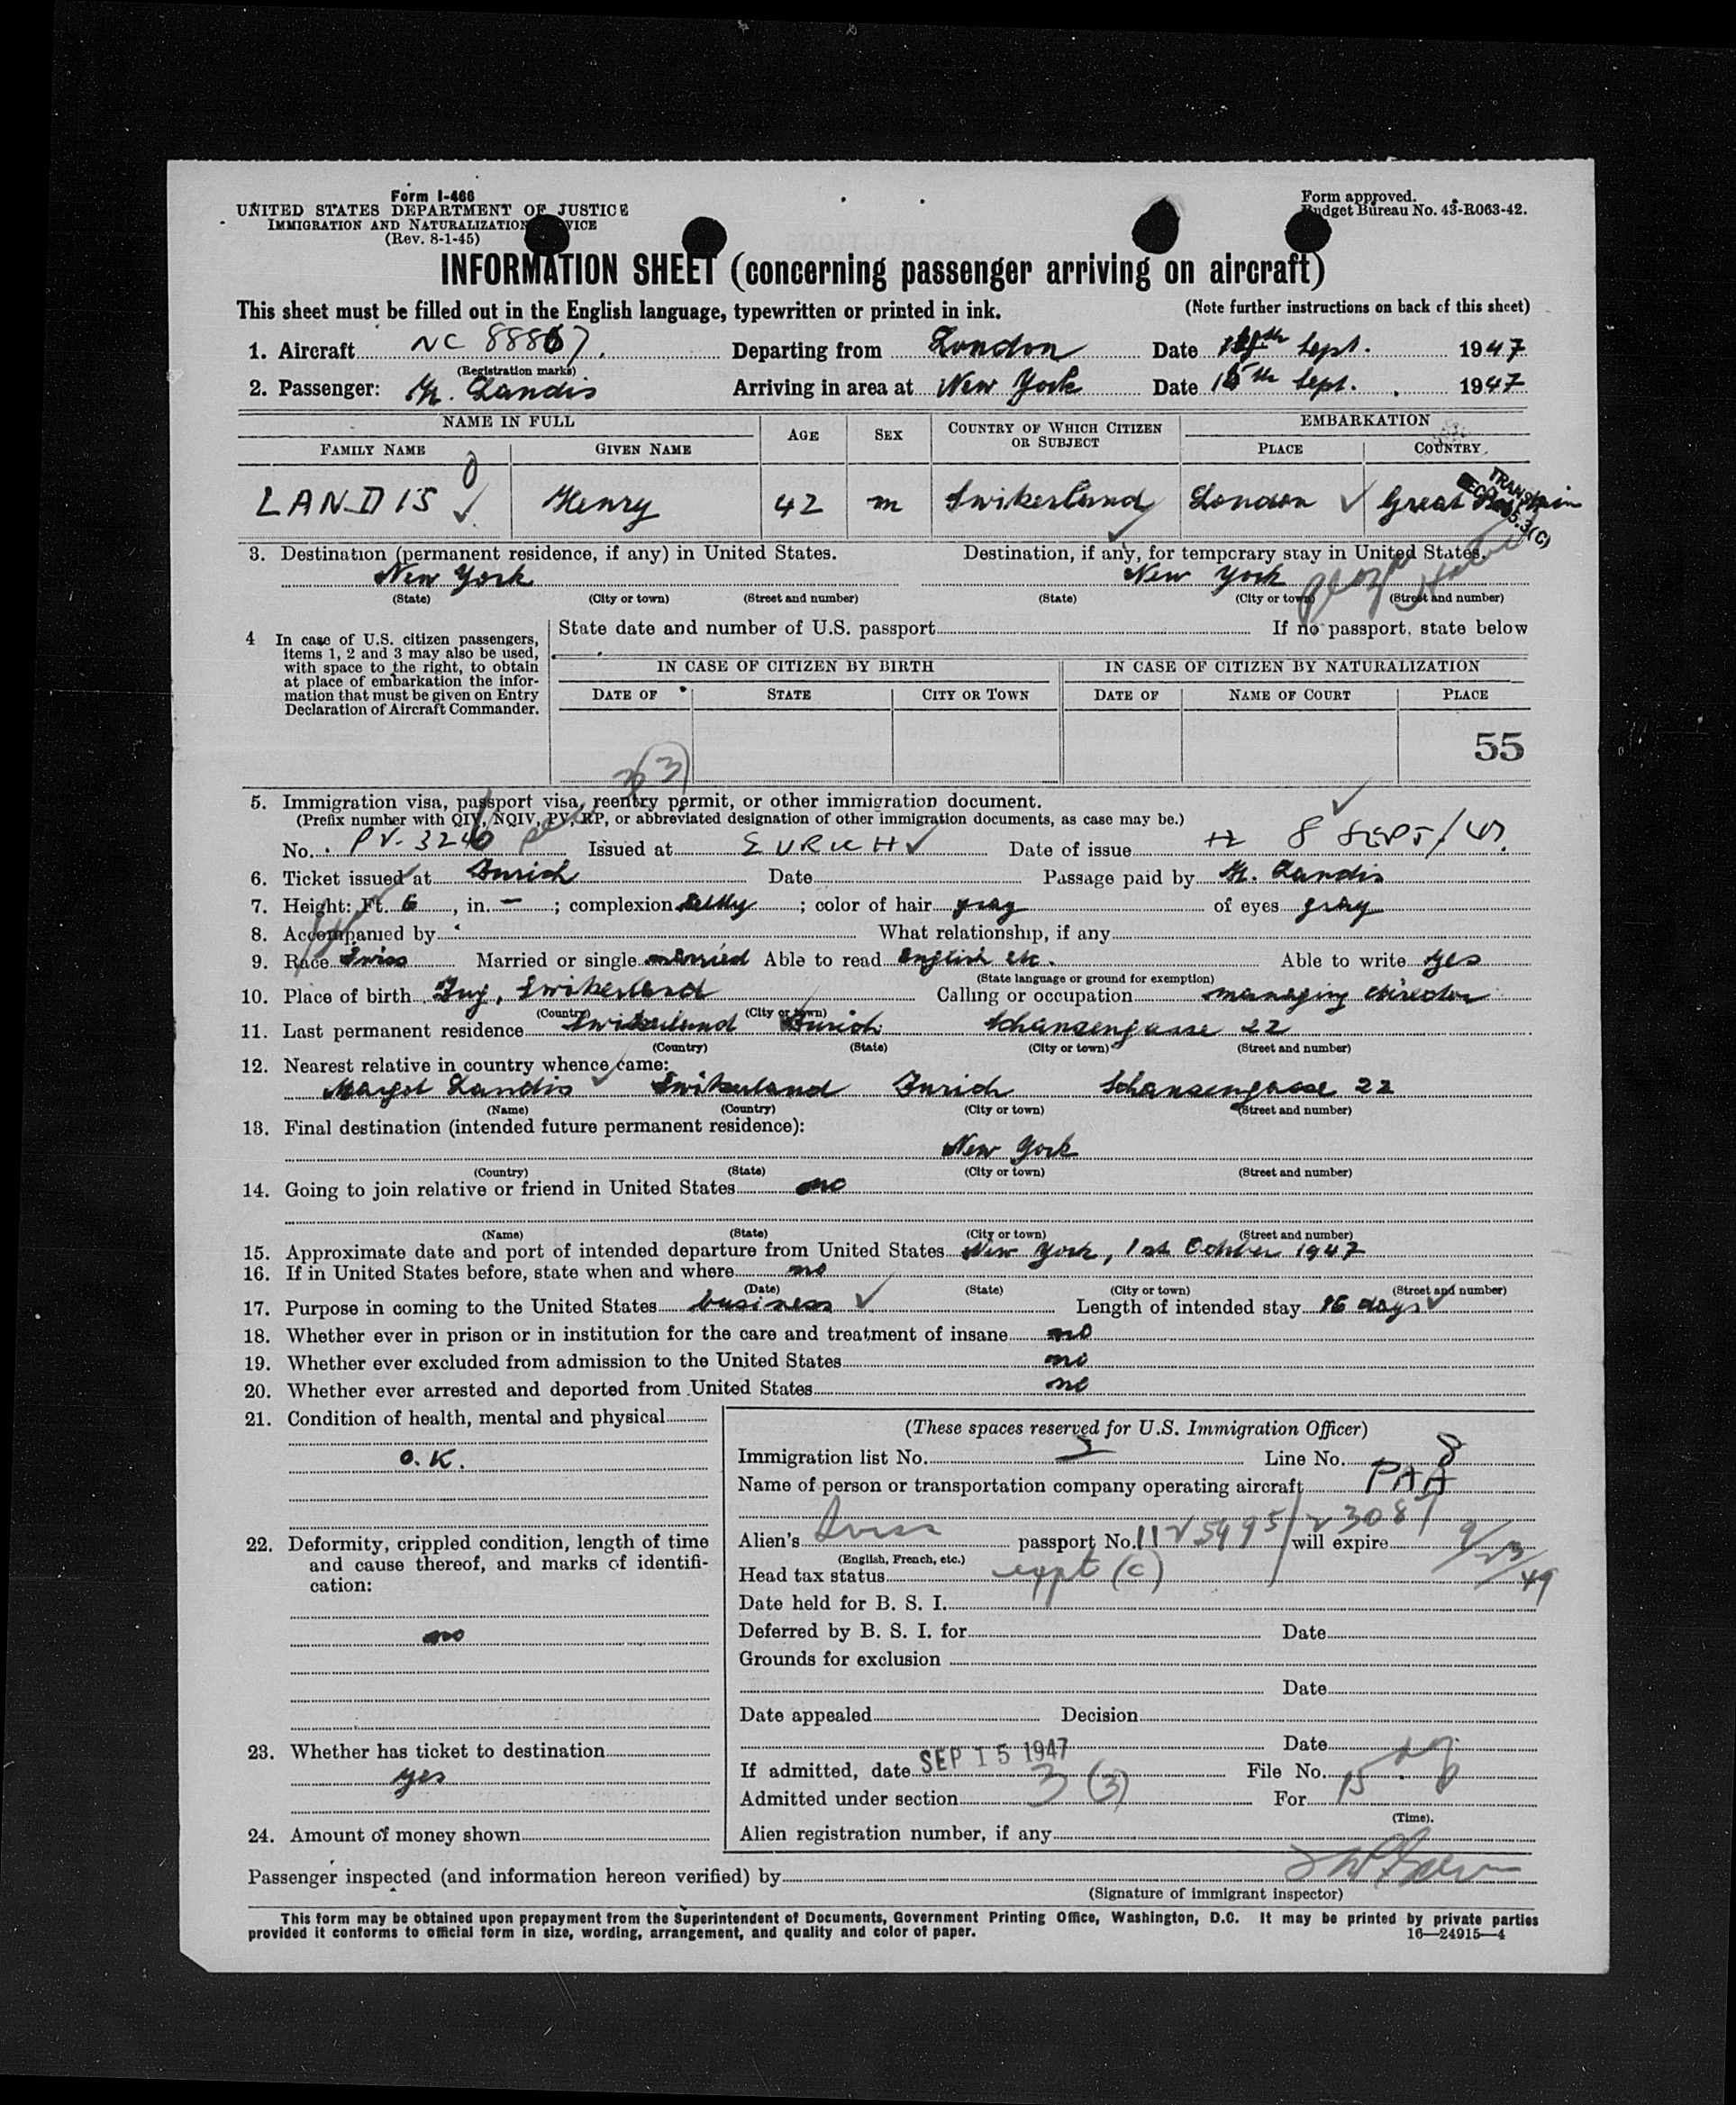 Form I-466
UNITED STATES DEPARTMENT OF JUSTICE
IMMIGRATION AND NATURALIZATION SERVICE
(Rev. 8-1-45)
Form approved.
Budget Bureau No. 43-R063-42.
INFORMATION SHEET (concerning passenger arriving on aircraft)
This sheet must be filled out in the English language, typewritten or printed in ink. (Note further instructions on back of this sheet)
1. Aircraft NC 88867. Departing from London Date Sept. 1947
(Registration marks)
2. Passenger: H. Landis Arriving in area at New York Date 15th Sept. 1947
NAME IN FULL AGE SEX COUNTRY OF WHICH CITIZEN OR SUBJECT EMBARKATION
FAMILY NAME GIVEN NAME PLACE COUNTRY
LANDIS Henry 42 m Switzerland London Great Britain
3. Destination (permanent residence, if any) in United States. Destination, if any, for temporary stay in United States.
New York New York Plaza Hotel
(State) (City or town) (Street and number) (State) (City or town) (Street and number)
4 In case of U.S. citizen passengers, items 1, 2 and 3 may also be used, with space to the right, to obtain at place of embarkation the information that must be given on Entry Declaration of Aircraft Commander.
State date and number of U.S. passport If no passport, state below
IN CASE OF CITIZEN BY BIRTH IN CASE OF CITIZEN BY NATURALIZATION
DATE OF STATE CITY OR TOWN DATE OF NAME OF COURT PLACE
55
3(3)
5. Immigration visa, passport visa, reentry permit, or other immigration document.
(Prefix number with QIV, NQIV, PV, RP, or abbreviated designation of other immigration documents, as case may be.)
No. PV-3240 Issued at ZURICH Date of issue 8 SEPT/47.
6. Ticket issued at Zurich Date Passage paid by H. Landis
7. Height: Ft. 6, in. –; complexion ; color of hair gray of eyes gray
8. Accompanied by What relationship, if any
9. Race Swiss Married or single married Able to read English etc. Able to write yes
(State language or ground for exemption)
10. Place of birth Zug, Switzerland Calling or occupation managing director
(Country) (City or town)
11. Last permanent residence Switzerland Zurich Schanzengasse 22
(Country) (State) (City or town) (Street and number)
12. Nearest relative in country whence came:
Margot Landis Switzerland Zurich Schanzengasse 22
(Name) (Country) (City or town) (Street and number)
13. Final destination (intended future permanent residence):
New York
(Country) (State) (City or town) (Street and number)
14. Going to join relative or friend in United States no
(Name) (State) (City or town) (Street and number)
15. Approximate date and port of intended departure from United States New York, 1st October 1947
16. If in United States before, state when and where no
(Date) (State) (City or town) (Street and number)
17. Purpose in coming to the United States business Length of intended stay 16 days
18. Whether ever in prison or in institution for the care and treatment of insane no
19. Whether ever excluded from admission to the United States no
20. Whether ever arrested and deported from United States no
21. Condition of health, mental and physical
O.K.
22. Deformity, crippled condition, length of time and cause thereof, and marks of identification:
no
23. Whether has ticket to destination
yes
24. Amount of money shown
(These spaces reserved for U.S. Immigration Officer)
Immigration list No. 2 Line No. 8
Name of person or transportation company operating aircraft PAA
Alien's Swiss passport No. 1125495/23087 will expire 9/23/49
(English, French, etc.)
Head tax status expt (C)
Date held for B. S. I.
Deferred by B. S. I. for Date
Grounds for exclusion
Date
Date appealed Decision
Date
If admitted, date SEP 15 1947 File No.
Admitted under section 3 (3) For 15
(Time).
Alien registration number, if any
Passenger inspected (and information hereon verified) by
(Signature of immigrant inspector)
This form may be obtained upon prepayment from the Superintendent of Documents, Government Printing Office, Washington, D.C. It may be printed by private parties
provided it conforms to official form in size, wording, arrangement, and quality and color of paper. 16—24915—4